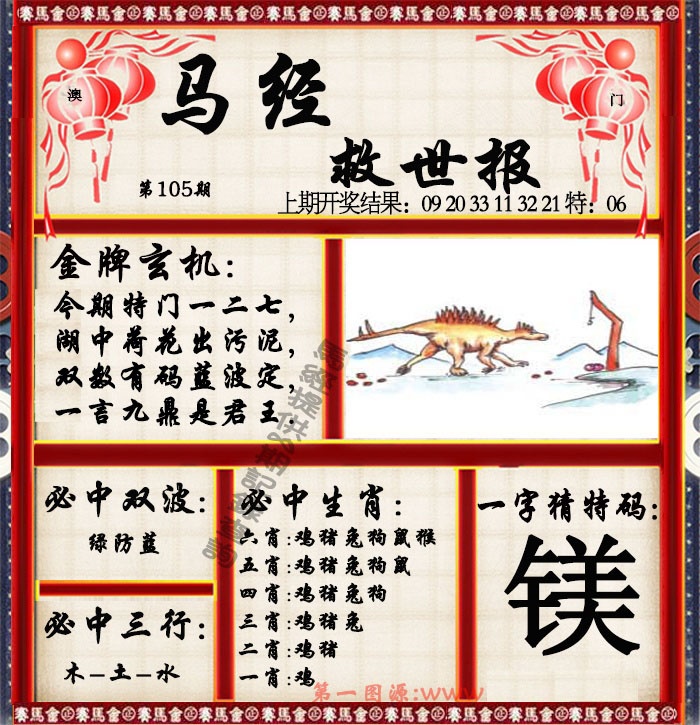 賽馬會正賽馬會正賽馬會正賽馬會正賽馬會正賽馬會
澳
门
马经
救世报
第105期
上期开奖结果：09 20 33 11 32 21 特：06
金牌玄机：
今期特门一二七，
湖中荷花出污泥，
双数有码蓝波定，
一言九鼎是君王.
必中双波：
绿防蓝
必中三行：
木-土-水
必中生肖：
六肖:鸡猪兔狗鼠猴
五肖:鸡猪兔狗鼠
四肖:鸡猪兔狗
三肖:鸡猪兔
二肖:鸡猪
一肖:鸡
一字猜特码：
镁
第一图源:www